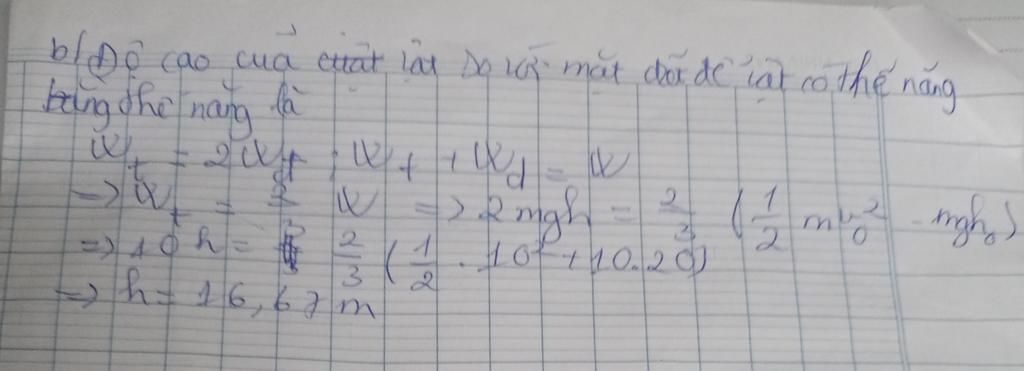 b/ Độ cao của vật so với mặt đất để vật có thế năng
bằng thế năng là
Wt = 2Wđ, Wt + Wd = W
=> Wt = 2/3 W => 2mgh = 2/3 (1/2 mv₀² - mgh₀)
=> 10h = 2/3 (1/2 . 10² + 10.20)
=> h = 16,67 m